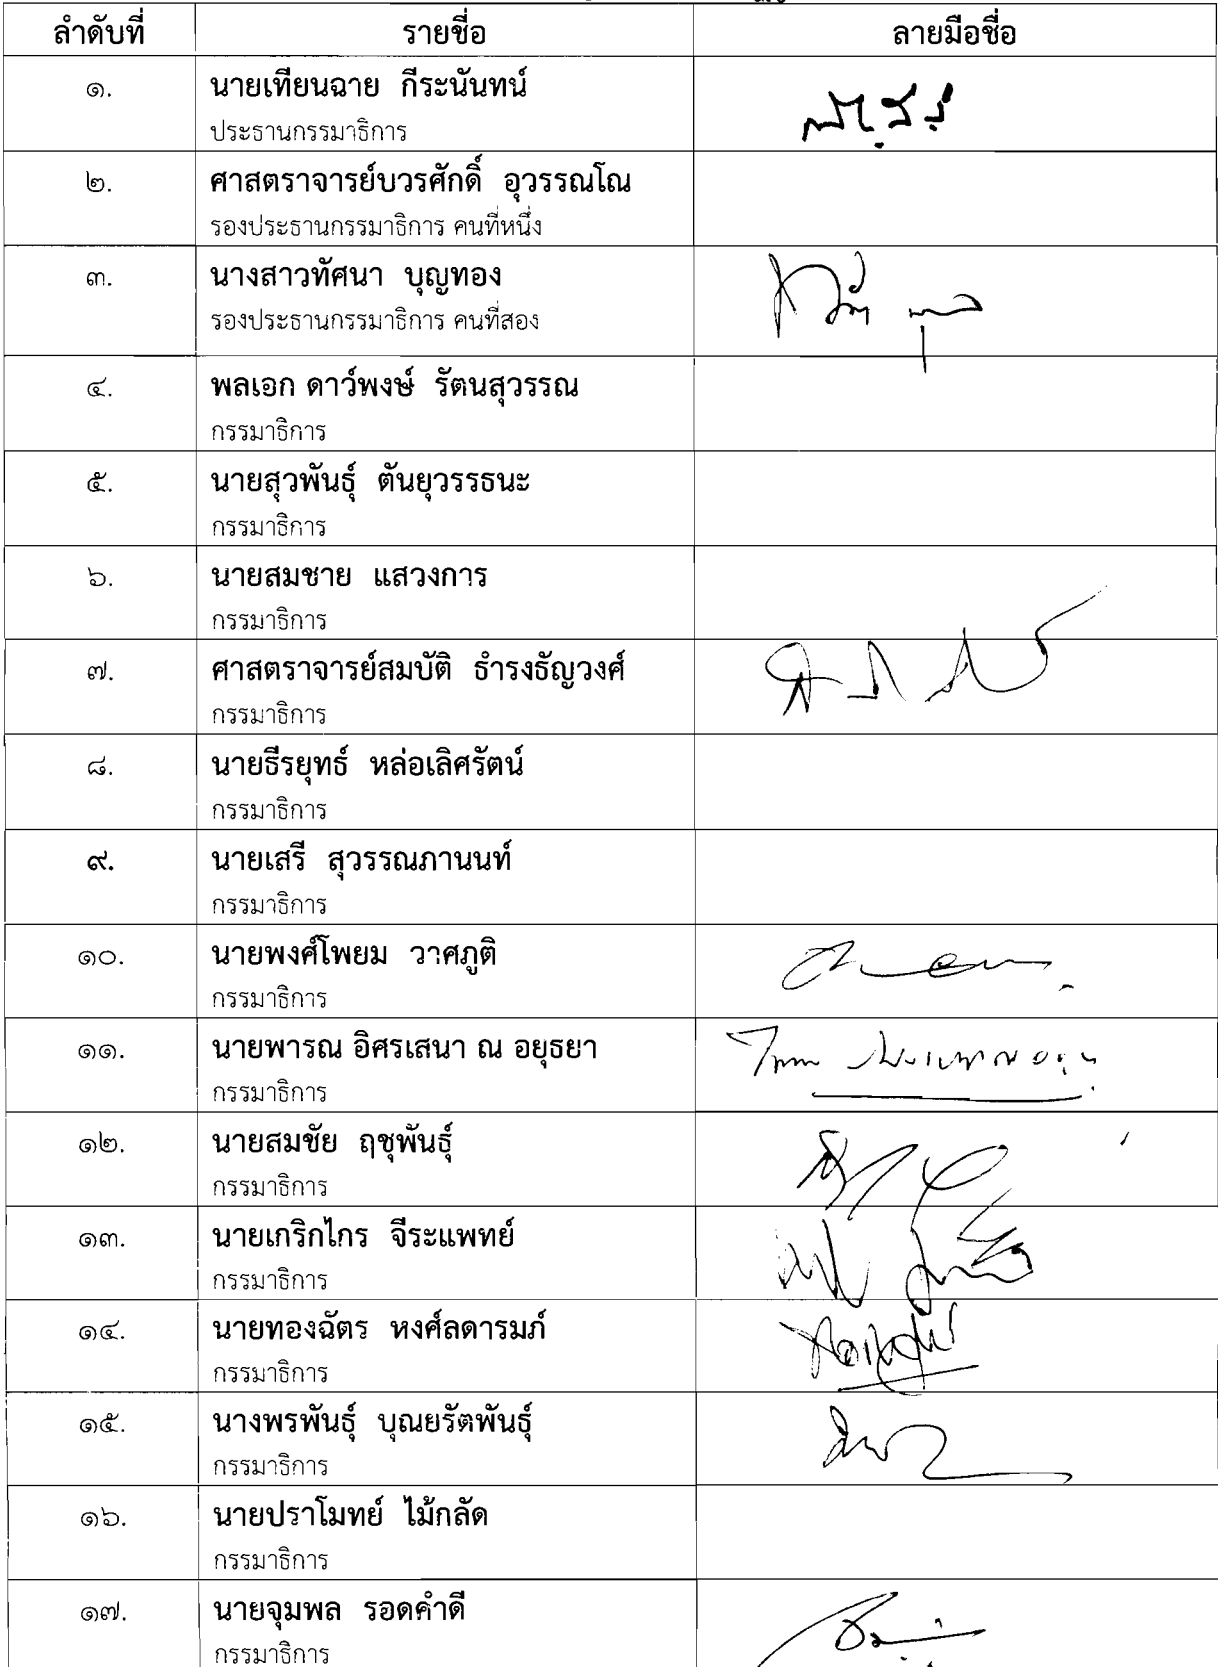 ลำดับที่ รายชื่อ ลายมือชื่อ
๑. นายเทียนฉาย กีระนันทน์
ประธานกรรมาธิการ
๒. ศาสตราจารย์บวรศักดิ์ อุวรรณโณ
รองประธานกรรมาธิการ คนที่หนึ่ง
๓. นางสาวทัศนา บุญทอง
รองประธานกรรมาธิการ คนที่สอง
๔. พลเอก ดาว์พงษ์ รัตนสุวรรณ
กรรมาธิการ
๕. นายสุวพันธุ์ ตันยุวรรธนะ
กรรมาธิการ
๖. นายสมชาย แสวงการ
กรรมาธิการ
๗. ศาสตราจารย์สมบัติ ธำรงธัญวงศ์
กรรมาธิการ
๘. นายธีรยุทธ์ หล่อเลิศรัตน์
กรรมาธิการ
๙. นายเสรี สุวรรณภานนท์
กรรมาธิการ
๑๐. นายพงศ์โพยม วาศภูติ
กรรมาธิการ
๑๑. นายพารณ อิศรเสนา ณ อยุธยา
กรรมาธิการ
๑๒. นายสมชัย ฤชุพันธุ์
กรรมาธิการ
๑๓. นายเกริกไกร จีระแพทย์
กรรมาธิการ
๑๔. นายทองฉัตร หงศ์ลดารมภ์
กรรมาธิการ
๑๕. นางพรพันธุ์ บุณยรัตพันธุ์
กรรมาธิการ
๑๖. นายปราโมทย์ ไม้กลัด
กรรมาธิการ
๑๗. นายจุมพล รอดคำดี
กรรมาธิการ